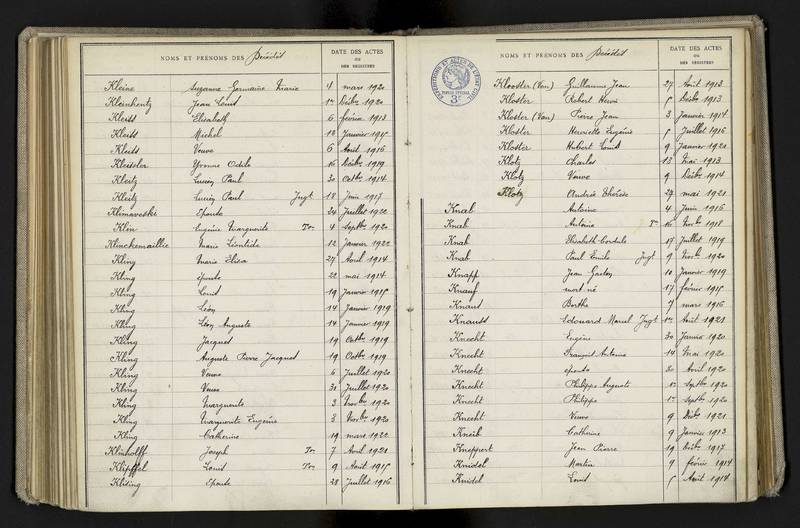 NOMS ET PRÉNOMS DES Décédés
DATE DES ACTES
OU
DES REGISTRES
Kleine Suzanne Germaine Marie 4 mars 1920
Kleinhentz Jean Louis 1er Décbre 1920
Kleiss Elisabeth 6 février 1913
Kleiss Michel 18 Janvier 1915
Kleiss Veuve 6 Août 1916
Kleissler Yvonne Odile 16 Décbre 1919
Kleitz Lucien Paul 30 Octbre 1914
Kleitz Lucien Paul Jugt 18 Juin 1917
Klimaveski Epouse 24 Juillet 1922
Klin Eugénie Marguerite Ton 4 Septbre 1920
Klinckemaillie Marie Léontide 12 Janvier 1922
Kling Marie Elisa 27 Avril 1914
Kling Epouse 22 mai 1914
Kling Louis 19 Janvier 1915
Kling Léon 14 Janvier 1919
Kling Léon Auguste 14 Janvier 1919
Kling Jacques 19 Octbre 1919
Kling Auguste Pierre Jacques 19 Octbre 1919
Kling Veuve 6 Juillet 1920
Kling Veuve 30 Juillet 1920
Kling Marguerite 3 Novbre 1920
Kling Marguerite Eugénie 3 Novbre 1920
Kling Catherine 19 mars 1922
Klinholff Joseph Ton 7 Avril 1921
Klipffel Louis Ton 9 Août 1915
Klising Epouse 28 Juillet 1916
NOMS ET PRÉNOMS DES Décédés
DATE DES ACTES
OU
DES REGISTRES
Klooster (Van) Guillaume Jean 27 Août 1913
Kloster Robert Henri 5 Décbre 1913
Kloster (Van) Pierre Jean 3 Janvier 1914
Kloster Henriette Eugénie 5 Juillet 1916
Kloster Hubert Louis 9 Janvier 1920
Klotz Charles 13 Mai 1913
Klotz Veuve 9 Décbre 1914
Klotz Andrée Thérèse 24 mai 1921
Knab Antoine 4 Juin 1916
Knab Antoine Ton 16 Novbre 1918
Knab Elisabeth Cordule 17 Juillet 1919
Knab Paul Emile Jugt 9 Novbre 1920
Knapp Jean Gaston 10 Janvier 1919
Knauf mort né 17 février 1915
Knaus Berthe 7 mars 1916
Knauss Edouard Marcel Jugt 1er Août 1921
Knecht Eugène 30 Janvier 1920
Knecht François Antoine 14 Mai 1920
Knecht épouse 30 Avril 1920
Knecht Philippe Auguste 1er Septbre 1920
Knecht Philippe 1er Septbre 1920
Knecht Veuve 9 Décbre 1921
Kneib Catherine 9 Janvier 1913
Kneppert Jean Pierre 19 Décbre 1917
Knidel Martin 9 février 1914
Knidel Louis 5 Août 1914